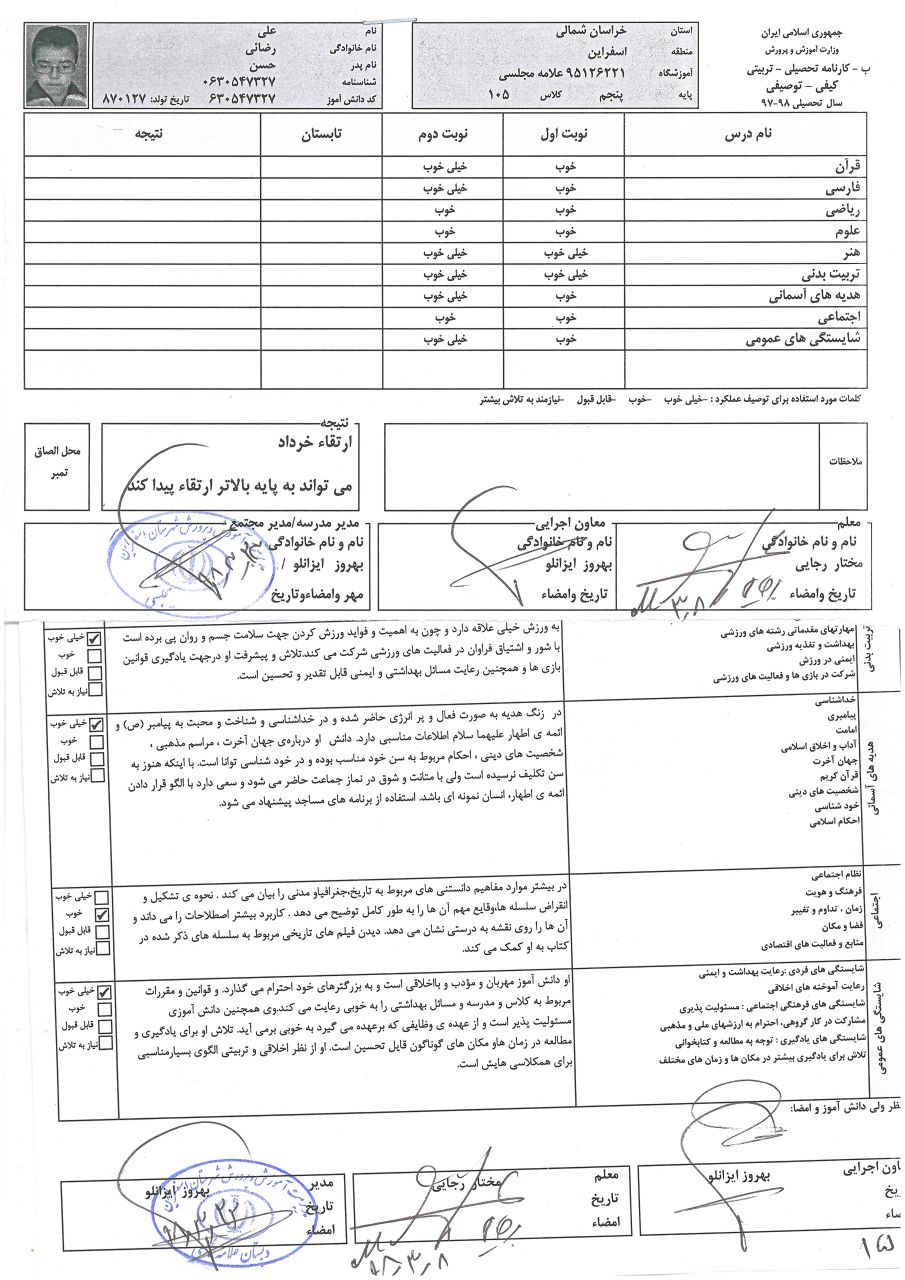 جمهوری اسلامی ایران
وزارت آموزش و پرورش
ب - کارنامه تحصیلی - تربیتی
کیفی - توصیفی
سال تحصیلی ۹۸-۹۷
استان خراسان شمالی
منطقه اسفراین
آموزشگاه ۹۵۱۲۶۲۲۱ علامه مجلسی
پایه پنجم کلاس ۱۰۵
نام علی
نام خانوادگی رضائی
نام پدر حسن
شناسنامه ۰۶۳۰۵۴۷۳۲۷
کد دانش آموز ۰۶۳۰۵۴۷۳۲۷ تاریخ تولد: ۸۷۰۱۲۷
نام درس نوبت اول نوبت دوم تابستان نتیجه
قرآن خوب خیلی خوب
فارسی خوب خیلی خوب
ریاضی خوب خوب
علوم خوب خوب
هنر خیلی خوب خیلی خوب
تربیت بدنی خیلی خوب خیلی خوب
هدیه های آسمانی خوب خیلی خوب
اجتماعی خوب خوب
شایستگی های عمومی خوب خیلی خوب
کلمات مورد استفاده برای توصیف عملکرد : -خیلی خوب -خوب -قابل قبول -نیازمند به تلاش بیشتر
ملاحظات
نتیجه
ارتقاء خرداد
می تواند به پایه بالاتر ارتقاء پیدا کند
محل الصاق
تمبر
معلم
نام و نام خانوادگی
مختار رجایی
تاریخ وامضاء
۹۸٫۳٫۸
معاون اجرایی
نام و نام خانوادگی
بهروز ایزانلو
تاریخ وامضاء
مدیر مدرسه/مدیر مجتمع
نام و نام خانوادگی
بهروز ایزانلو /
مهر وامضاءوتاریخ
تربیت بدنی
مهارتهای مقدماتی رشته های ورزشی
بهداشت و تغذیه ورزشی
ایمنی در ورزش
شرکت در بازی ها و فعالیت های ورزشی
به ورزش خیلی علاقه دارد و چون به اهمیت و فواید ورزش کردن جهت سلامت جسم و روان پی برده است
با شور و اشتیاق فراوان در فعالیت های ورزشی شرکت می کند.تلاش و پیشرفت او درجهت یادگیری قوانین
بازی ها و همچنین رعایت مسائل بهداشتی و ایمنی قابل تقدیر و تحسین است.
خیلی خوب ✔
خوب
قابل قبول
نیاز به تلاش
هدیه های آسمانی
خداشناسی
پیامبری
امامت
آداب و اخلاق اسلامی
جهان آخرت
قرآن کریم
شخصیت های دینی
خود شناسی
احکام اسلامی
در زنگ هدیه به صورت فعال و پر انرژی حاضر شده و در خداشناسی و شناخت و محبت به پیامبر (ص) و
ائمه ی اطهار علیهما سلام اطلاعات مناسبی دارد. دانش او درباره‌ی جهان آخرت ، مراسم مذهبی ،
شخصیت های دینی ، احکام مربوط به سن خود مناسب بوده و در خود شناسی توانا است. با اینکه هنوز به
سن تکلیف نرسیده است ولی با متانت و شوق در نماز جماعت حاضر می شود و سعی دارد با الگو قرار دادن
ائمه ی اطهار، انسان نمونه ای باشد. استفاده از برنامه های مساجد پیشنهاد می شود.
خیلی خوب ✔
خوب
قابل قبول
نیاز به تلاش
اجتماعی
نظام اجتماعی
فرهنگ و هویت
زمان ، تداوم و تغییر
فضا و مکان
منابع و فعالیت های اقتصادی
در بیشتر موارد مفاهیم دانستنی های مربوط به تاریخ،جغرافیاو مدنی را بیان می کند . نحوه ی تشکیل و
انقراض سلسله ها،وقایع مهم آن ها را به طور کامل توضیح می دهد . کاربرد بیشتر اصطلاحات را می داند و
آن ها را روی نقشه به درستی نشان می دهد. دیدن فیلم های تاریخی مربوط به سلسله های ذکر شده در
کتاب به او کمک می کند.
خیلی خوب
خوب ✔
قابل قبول
نیاز به تلاش
شایستگی های عمومی
شایستگی های فردی :رعایت بهداشت و ایمنی
رعایت آموخته های اخلاقی
شایستگی های فرهنگی اجتماعی : مسئولیت پذیری
مشارکت در کار گروهی، احترام به ارزشهای ملی و مذهبی
شایستگی های یادگیری : توجه به مطالعه و کتابخوانی
تلاش برای یادگیری بیشتر در مکان ها و زمان های مختلف
او دانش آموز مهربان و مؤدب و بااخلاقی است و به بزرگترهای خود احترام می گذارد. و قوانین و مقررات
مربوط به کلاس و مدرسه و مسائل بهداشتی را به خوبی رعایت می کندوی همچنین دانش آموزی
مسئولیت پذیر است و از عهده ی وظایفی که برعهده می گیرد به خوبی برمی آید. تلاش او برای یادگیری و
مطالعه در زمان هاو مکان های گوناگون قابل تحسین است. او از نظر اخلاقی و تربیتی الگوی بسیارمناسبی
برای همکلاسی هایش است.
خیلی خوب ✔
خوب
قابل قبول
نیاز به تلاش
ظر ولی دانش آموز و امضا:
اون اجرایی بهروز ایزانلو
تاریخ
ضاء
معلم مختار رجایی
تاریخ
امضاء
۹۸٫۳٫۸
مدیر بهروز ایزانلو
تاریخ
امضاء